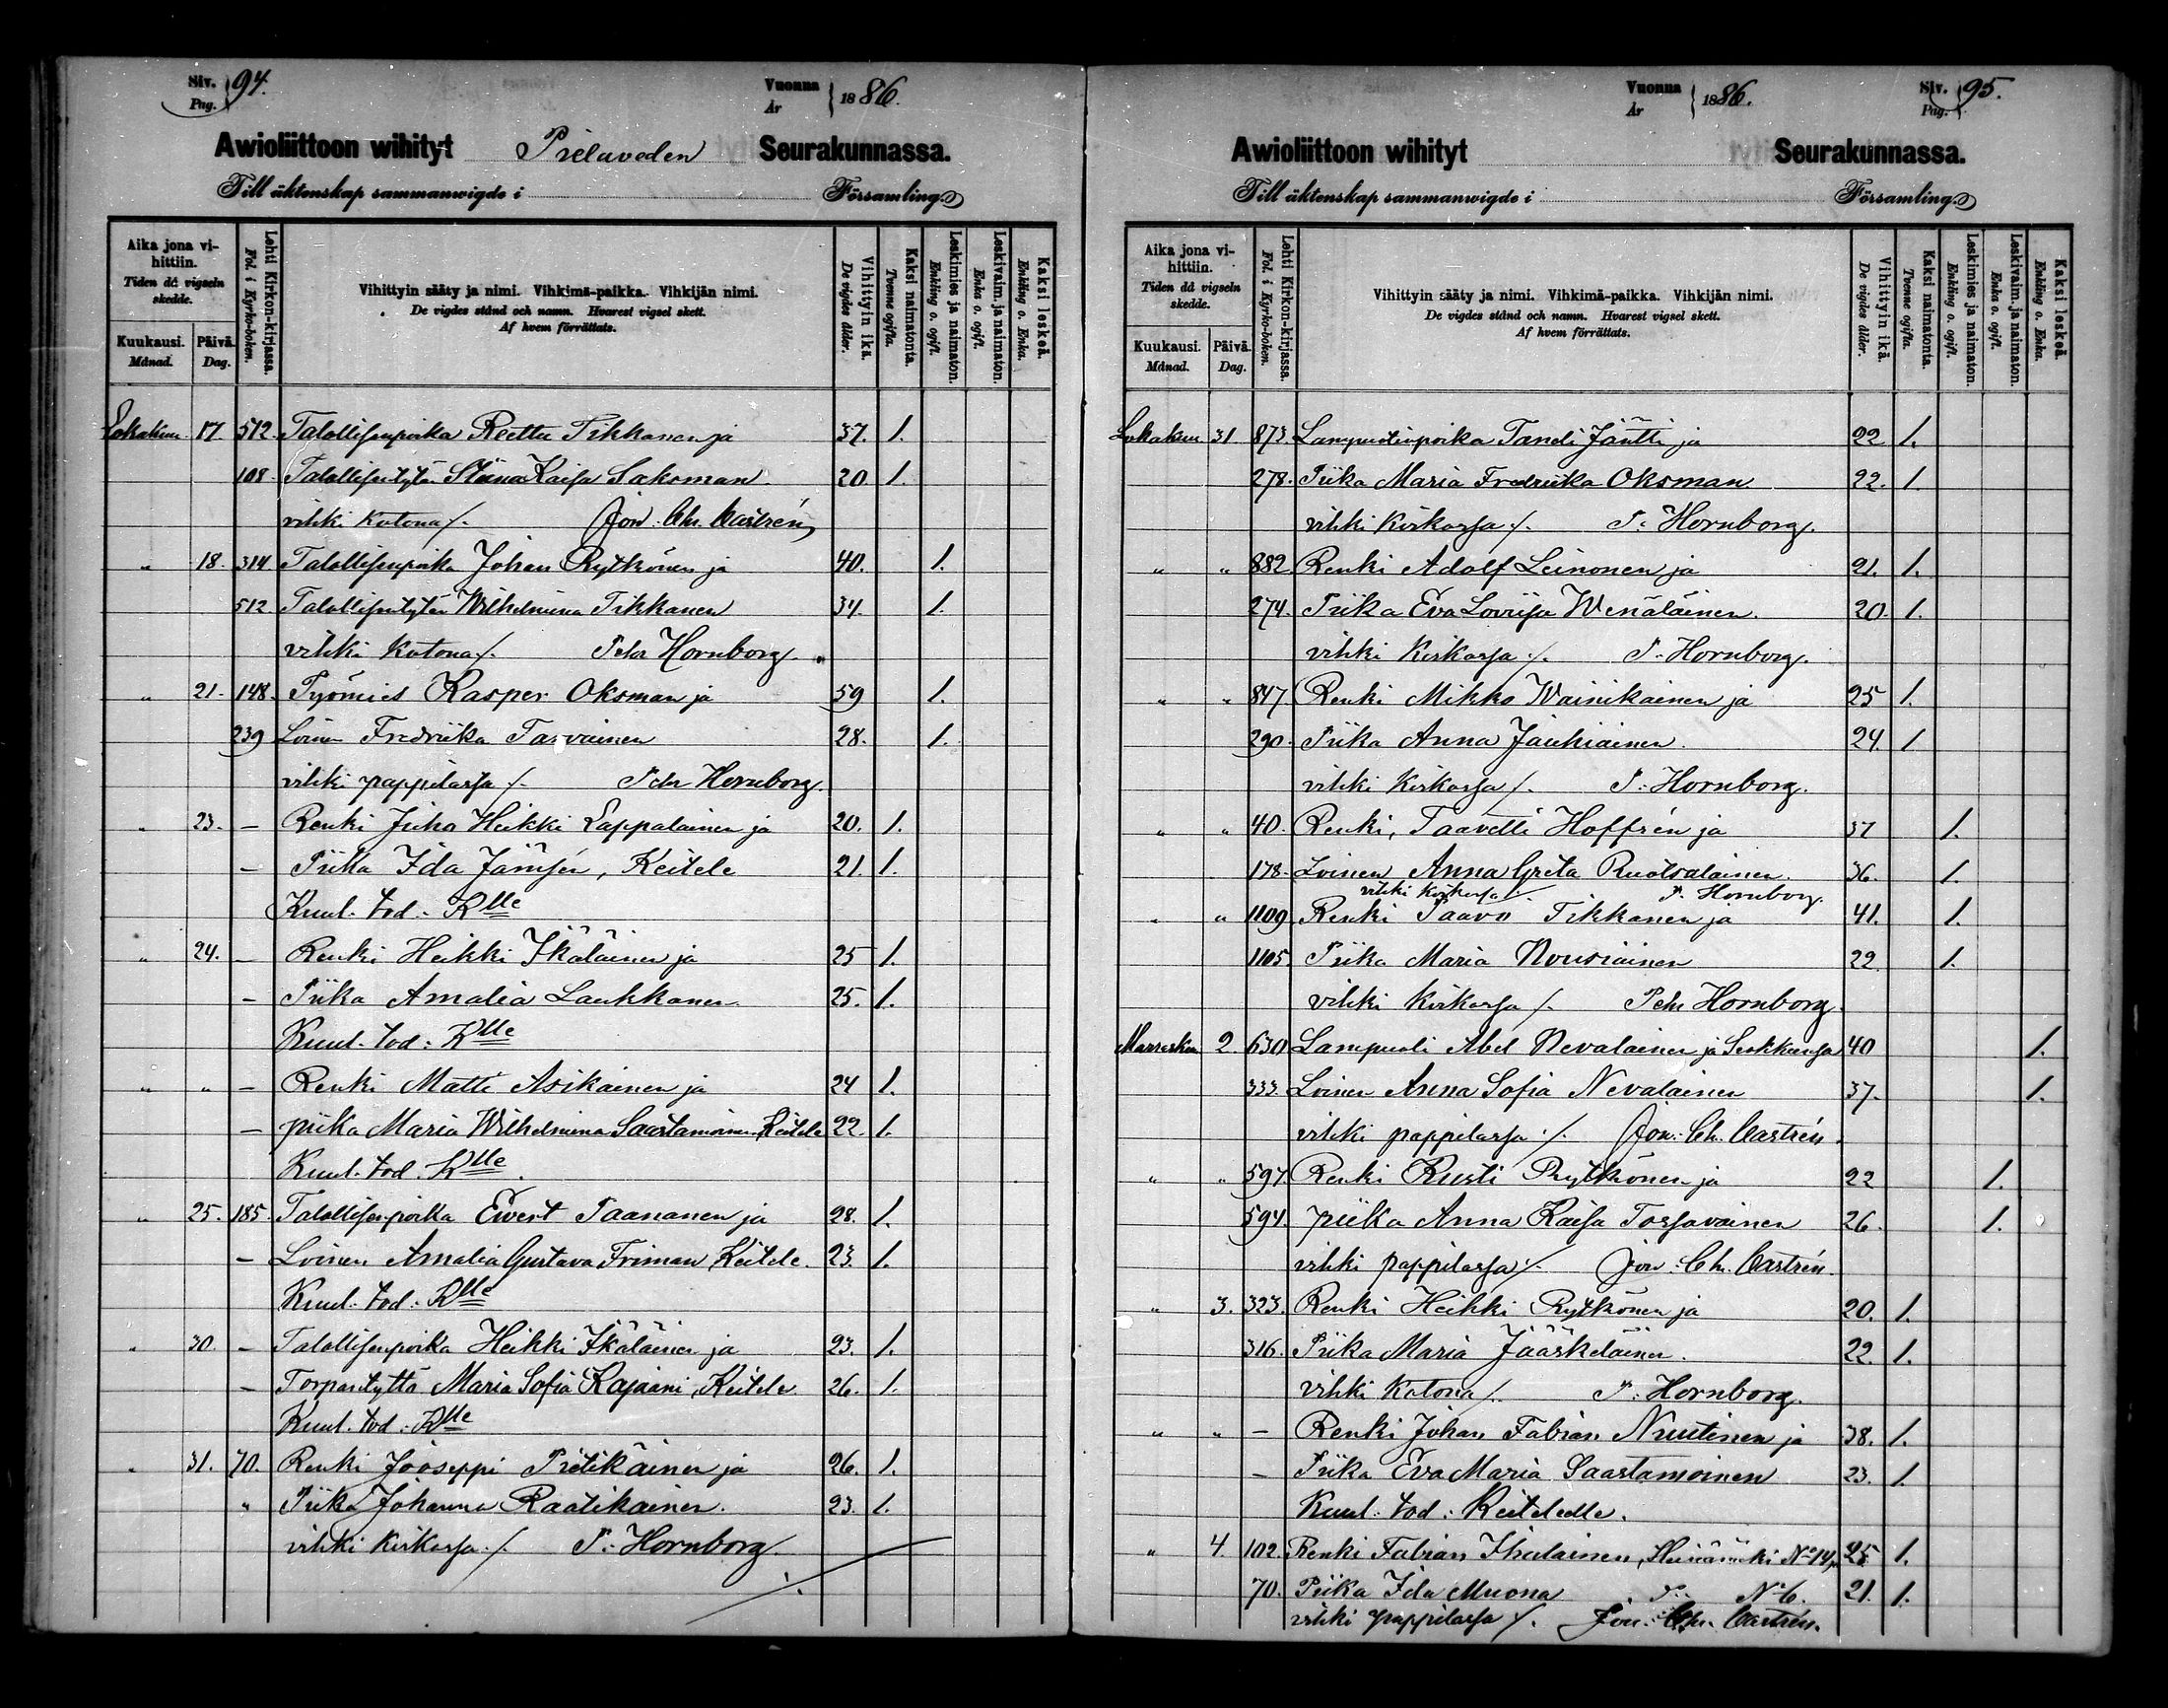 Siv. Pag. 94.
Vuonna År 1886.
Awioliittoon wihityt Pielaveden Seurakunnassa.
Till äktenskap sammanwigde i Församling.
Aika jona vihittiin. Tiden då vigseln skedde.
Kuukausi. Månad.
Päivä. Dag.
Lehti Kirkon-kirjassa. Fol. i Kyrko-boken.
Vihittyin sääty ja nimi. Vihkimä-paikka. Vihkijän nimi.
De vigdes stånd och namn. Hvarest vigsel skett.
Af hvem förrättats.
Vihittyin ikä. De vigdes ålder.
Kaksi naimatonta. Tvenne ogifta.
Leskimies ja naimaton. Enkling o. ogift.
Leskivaim. ja naimaton. Enka o. ogift.
Kaksi leskeä. Enkling o. Enka.
Lokakuu 17. 512. Talollisenpoika Reettu Tikkanen ja 37. 1.
108. Talollisentytär Stiina Kaisa Saksman 20 1.
vihki kotona /. Jon. Chr. Castrén
" 18. 314 Talollisenpoika Johan Rytkönen ja 40. 1.
512. Talollisentytär Wilhelmina Tikkanen 34. 1.
vihki kotona /. Pehr Hornborg.
" 21. 148. Työmies Kasper Oksman ja 59 1.
239 Loinen Fredriika Tarvainen 28. 1.
vihki pappilassa /. Pehr Hornborg.
" 23. — Renki Juho Heikki Lappalainen ja 20. 1.
— Piika Ida Jämsén, Keitele 21. 1.
Kuul. tod. Klle
" 24. — Renki Heikki Ikäläinen ja 25 1.
— Piika Amalia Laukkanen 25. 1.
Kuul. tod. Klle
" " — Renki Matti Asikainen ja 24 1.
— piika Maria Wilhelmina Saastamoinen Keitele 22. 1.
Kuul. tod. Klle
" 25. 185. Talollisenpoika Ewert Paananen ja 28. 1.
— Loinen Amalia Gustava Friman, Keitele. 23. 1.
Kuul. tod. Klle
" 30. — Talollisenpoika Heikki Ikäläinen ja 23. 1.
— Torparitytär Maria Sofia Kajaani, Keitele 26. 1.
Kuul. tod. Klle
" 31. 70. Renki Jooseppi Pietikäinen ja 26. 1.
" Piika Johanna Raatikainen. 23. 1.
vihki kirkossa /. P. Hornborg.
Vuonna År 1886.
Siv. Pag. 95.
Awioliittoon wihityt Seurakunnassa.
Till äktenskap sammanwigde i Församling.
Aika jona vihittiin. Tiden då vigseln skedde.
Kuukausi. Månad.
Päivä. Dag.
Lehti Kirkon-kirjassa. Fol. i Kyrko-boken.
Vihittyin sääty ja nimi. Vihkimä-paikka. Vihkijän nimi.
De vigdes stånd och namn. Hvarest vigsel skett.
Af hvem förrättats.
Vihittyin ikä. De vigdes ålder.
Kaksi naimatonta. Tvenne ogifta.
Leskimies ja naimaton. Enkling o. ogift.
Leskivaim. ja naimaton. Enka o. ogift.
Kaksi leskeä. Enkling o. Enka.
Lokakuu 31 873. Lampuotinpoika Taneli Jäntti ja 22 1.
278. Piika Maria Fredriika Oksman 22. 1.
vihki kirkossa /. P. Hornborg.
" " 882. Renki Adolf Leinonen ja 21. 1.
274. Piika Eva Lovisa Wenäläinen. 20. 1.
vihki kirkossa /. P. Hornborg.
" " 847. Renki Mikko Wainikainen ja 25 1.
290. Piika Anna Jauhiainen. 24. 1
vihki kirkossa /. P. Hornborg.
" " 40. Renki, Taavetti Hoffrén ja 37 1.
178. Loinen Anna Greta Ruotsalainen. 36. 1.
vihki kirkossa /. P. Hornborg.
" " 1109. Renki Paavo Tikkanen ja 41. 1.
1105. Piika Maria Nousiainen 22 1.
vihki kirkossa /. Pehr Hornborg.
Marraskuu 2 630 Lampuoti Abel Nevalainen ja 40 1.
333. Loinen Anna Sofia Nevalainen 37. 1.
vihki pappilassa /. Jon. Ch. Castrén.
" " 597. Renki Kusti Rytkönen ja 22 1.
594. piika Anna Kaisa Tossavainen 26. 1.
vihki pappilassa /. Jon. Chr. Castrén.
" 3. 323. Renki Heikki Rytkönen ja 20. 1.
316. Piika Maria Jääskeläinen. 22. 1.
vihki kotona /. P. Hornborg.
" " — Renki Johan Fabian Nuutinen ja 38. 1.
— Piika Eva Maria Saastamoinen 23. 1.
Kuul. tod. Keiteleelle.
" 4. 102. Renki Fabian Ihalainen, No 14 25 1.
70. Piika Ida Muona No 6. 21. 1.
vihki pappilassa /. Jon. Chr. Castrén.